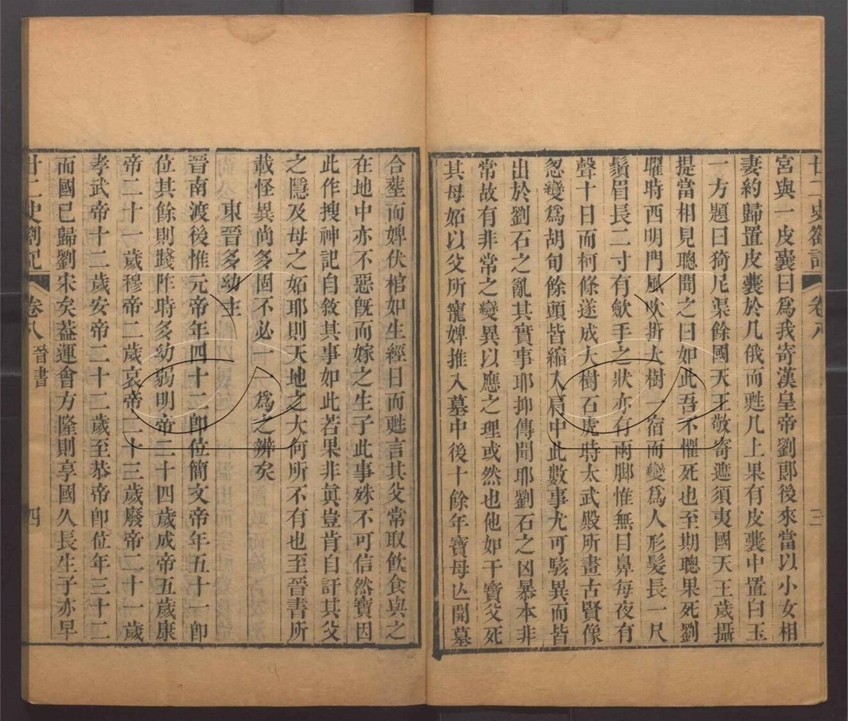 廿二史劄記 卷八 三
宮與一皮囊曰爲我寄漢皇帝劉郎後來當以小女相
妻約歸置皮囊於几俄而甦几上果有皮囊中置白玉
一方題曰猗尼渠餘國天王敬寄遮須夷國天王歲攝
提當相見聰聞之曰如此吾不懼死也至期聰果死劉
曜時西明門風吹折大樹一宿而變爲人形髮長一尺
鬚眉長二寸有歛手之狀亦有兩脚惟無目鼻每夜有
聲十日而柯條遂成大樹石虎時太武殿所畫古賢像
忽變爲胡旬餘頭皆縮入肩中此數事尤可駭異而皆
出於劉石之亂其實事耶抑傳聞耶劉石之凶暴本非
常故有非常之變異以應之理或然也他如干寶父死
其母妬以父所寵婢推入墓中後十餘年寶母亾開墓
合葬而婢伏棺如生經日而甦言其父常取飲食與之
在地中亦不惡旣而嫁之生子此事殊不可信然寶因
此作搜神記自敘其事如此若果非眞豈肯自訐其父
之隱及母之妬耶則天地之大何所不有也至晉書所
載怪異尚多固不必一一爲之辨矣
東晉多幼主
晉南渡後惟元帝年四十二卽位簡文帝年五十一卽
位其餘則踐阼時多幼弱明帝二十四歲成帝五歲康
帝二十一歲穆帝二歲哀帝二十三歲廢帝二十一歲
孝武帝十二歲安帝二十二歲至恭帝卽位年三十二
而國已歸劉宋矣葢運會方隆則享國久長生子亦早
廿二史劄記 卷八 晉書 四